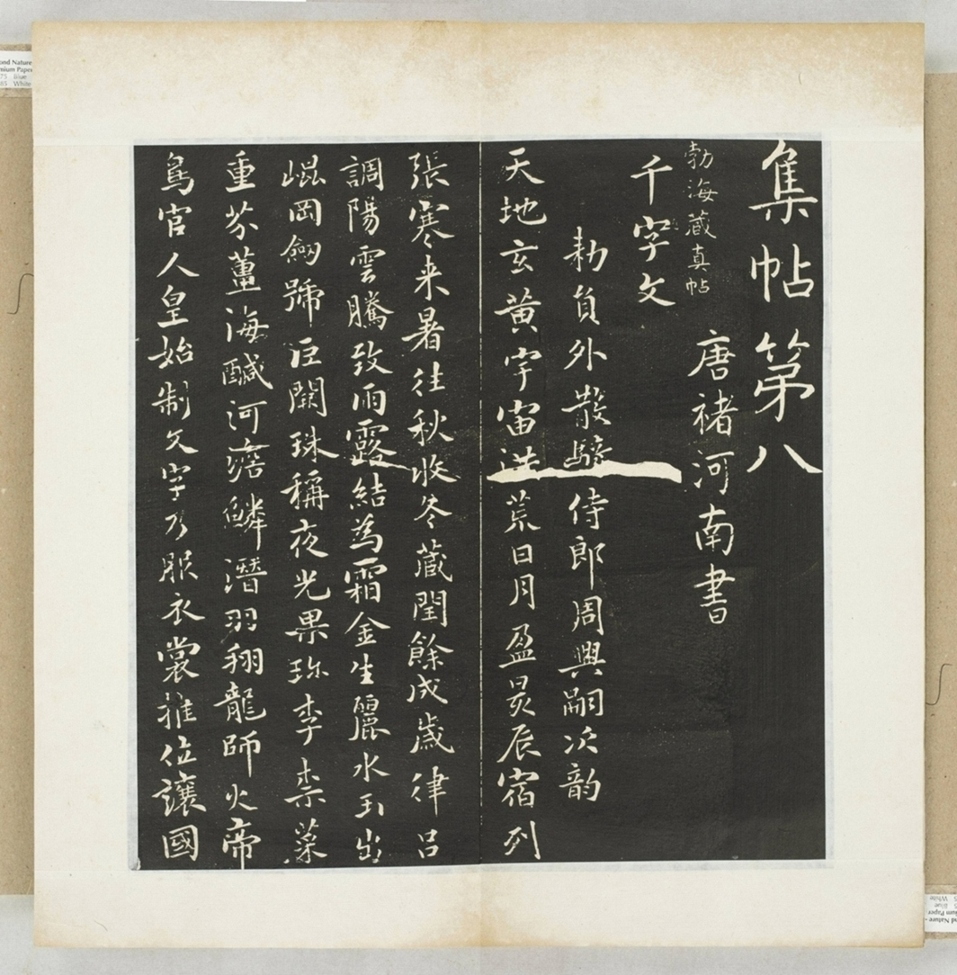 集帖第八
勃海藏真帖
唐褚河南書
千字文
勑員外散騎侍郎周興嗣次韵
天地玄黄宇宙洪荒日月盈昃辰宿列
張寒来暑往秋收冬蔵閏餘成歲律吕
調陽雲騰致雨露結為霜金生麗水玉出
崐岡劒號巨闕珠稱夜光果珎李柰菜
重芥薑海醎河澹鱗潛羽翔龍師火帝
鳥官人皇始制文字乃服衣裳推位讓國